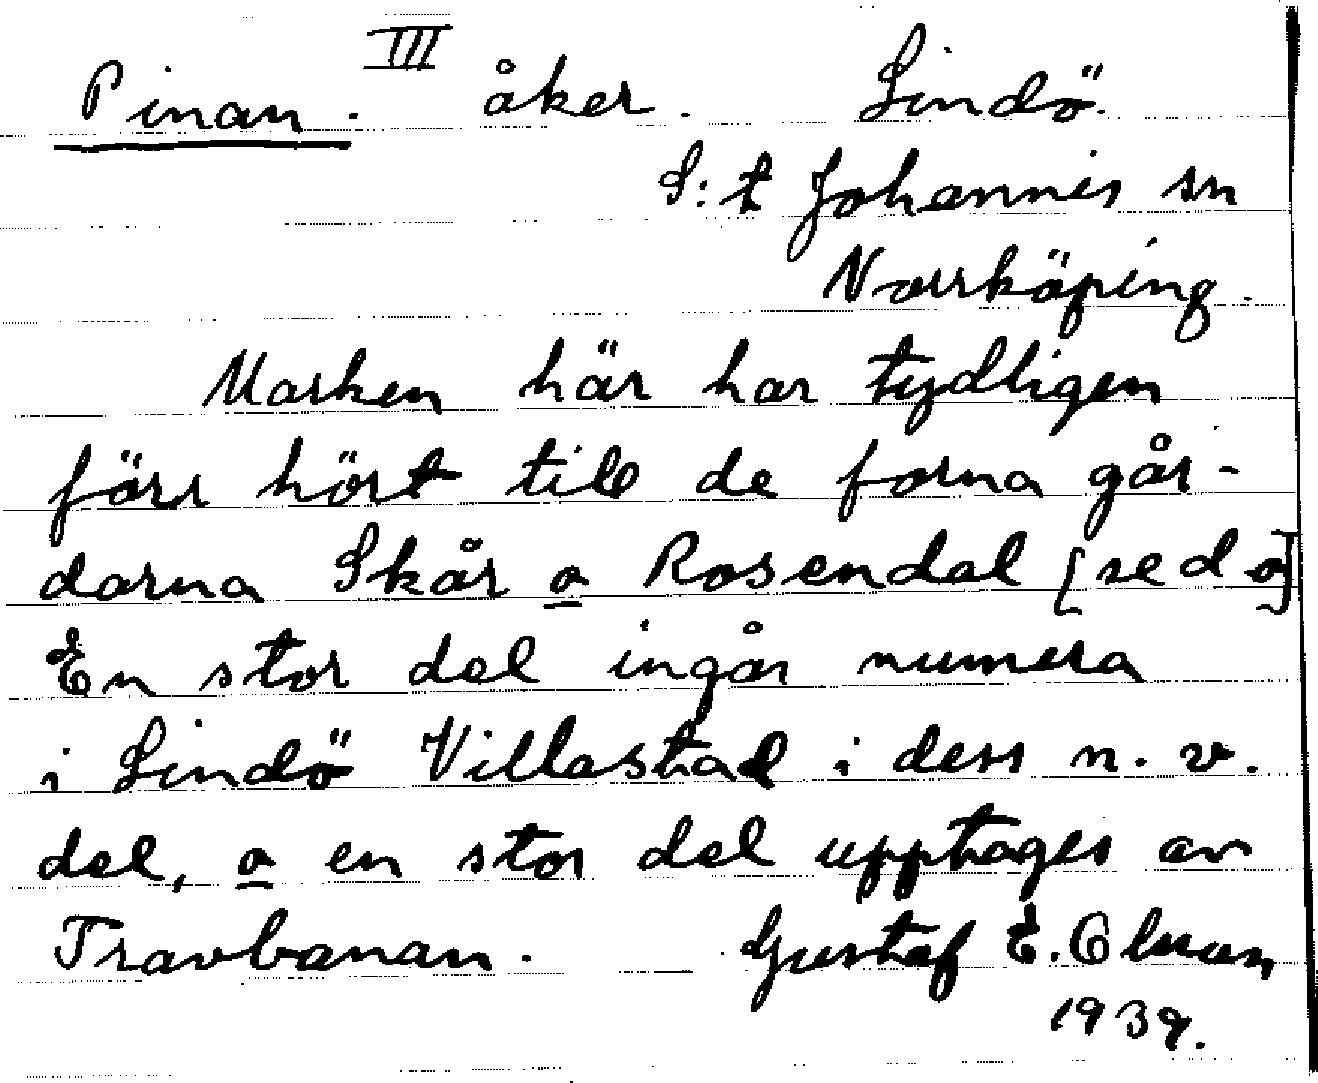 Pinan. III åker. Lindö.
S:t Johannis sn
Norrköping.
Marken här har tydligen
förr hört till de forna går-
darna Skår o Rosendal [se d o]
En stor del ingår numera
i Lindö Villastad i dess n. v.
del, o en stor del upptages av
Travbanan. Gustaf E.
1939.